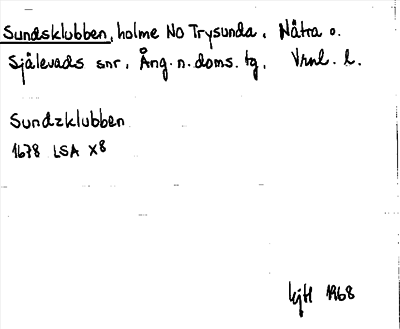 Sundsklubben, holme NO Trysunda, Nätra o.
Själevads snr, Ång. n. doms. tg, Vrnl. l.
Sundzklubben
1678 LSA X8
1968